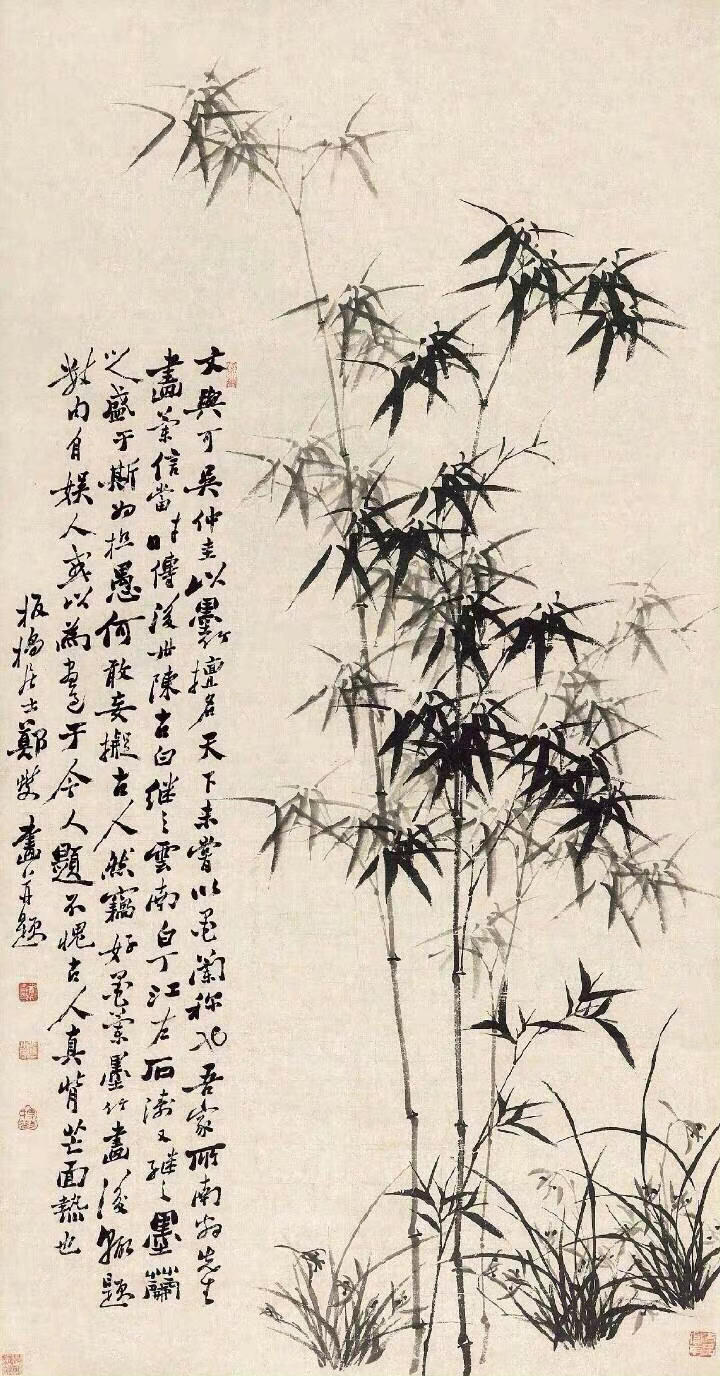 文與可吳仲圭以墨竹擅名天下未嘗以墨蘭称也吾家所南翁先生
畫蘭信當時傳後世陳古白継之雲南白丁江左石濤又継之墨蘭
之盛于斯為極愚何敢妄擬古人然竊好墨蘭墨竹畫後輒題
數句自娛人或以為畫于今人題不愧古人真背芒面熱也
板橋居士鄭燮畫并題